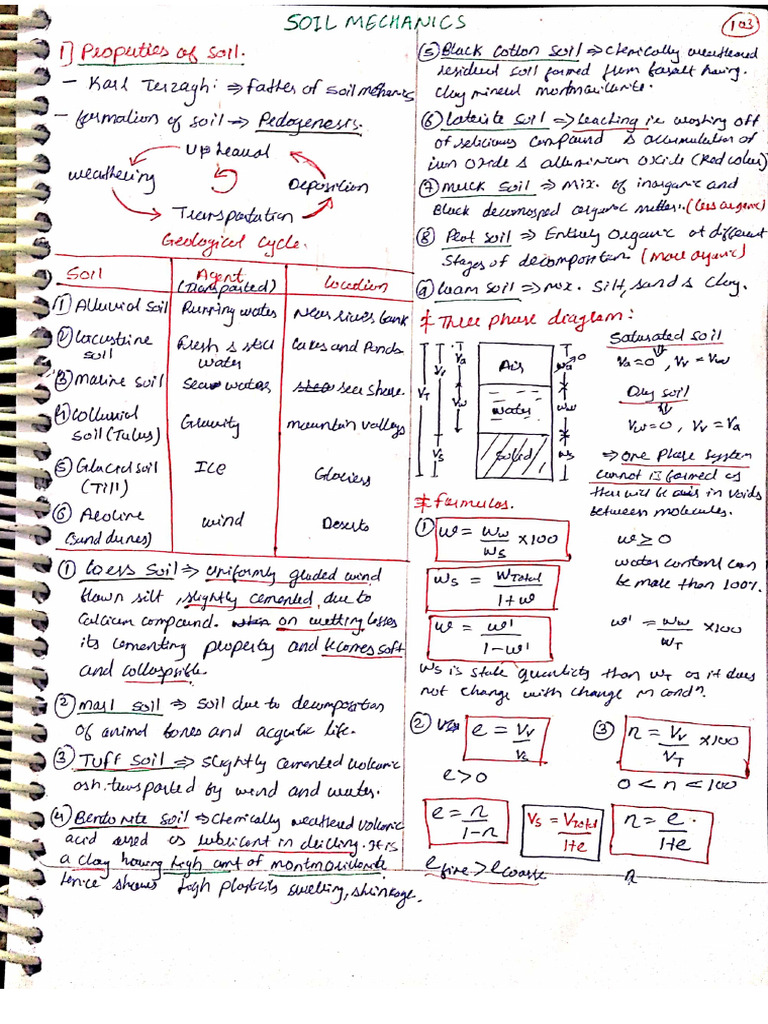 SOIL MECHANICS
103
1] Properties of soil.
- Karl Terzaghi ⇒ father of soil mechanics
- formation of soil → Pedogenesis.
Upheaval
weathering
Deposition
Transportation
Geological cycle.
Soil | Agent (Transported) | Location
① Alluvial soil | Running water | Near rivers bank
② Lacustrine soil | fresh & still water | Lakes and Ponds
③ Marine soil | Sea water | sea shore.
④ Colluvial soil (Talus) | Gravity | mountain valleys
⑤ Glacial soil (Till) | ICE | Glaciers
⑥ Aeoline (sand dunes) | wind | Deserts
① Loess Soil ⇒ Uniformly graded wind
blown silt, slightly cemented, due to
Calcium compound. on wetting losses
its cementing property and becomes soft
and collospible.
② marl soil ⇒ soil due to decomposition
of animal bones and aquatic life.
③ Tuff Soil ⇒ slightly cemented volcanic
ash transported by wind and water.
④ Bentonite soil ⇒ chemically weathered volcanic
acid used as lubricant in drilling. It is
a clay having high amt of montmorillonite
hence shows high plasticity swelling, shrinkage.
⑤ Black cotton soil ⇒ chemically weathered
residual soil formed from basalt having
clay mineral montmorillonite.
⑥ Laterite soil ⇒ leaching i.e washing off
of selicious compound & accumulation of
iron oxide & alluminium oxide (Red colour)
⑦ muck soil ⇒ mix. of inorganic and
Black decomosped organic matter. (less organic)
⑧ Peat soil ⇒ Entirely organic at different
stages of decomposition (more organic)
⑨ Loam soil ⇒ mix. silt, sand & clay.
# Three phase diagram:
Va
Vv
Vw
VT
Vs
Air
water
solid
wa
0
ww
ws
Saturated soil
⇓
Va = 0, Vv = Vw
Dry soil
⇓
Vw = 0, Vv = Va
⇒ one Phase system
cannot is formed as
there will be air in voids
between molecules.
# formulas.
① w = Ww/Ws × 100
Ws = WTotal/1+w
w = w'/1-w'
w ≥ 0
water content can
be more than 100%.
w' = Ww/WT × 100
Ws is stable quantity than WT as it does
not change with change in condn.
② e = Vv/Vs
e > 0
③ n = Vv/VT × 100
0 < n < 100
e = n/1-n
Vs = VTotal/1+e
n = e/1+e
e fine > e coarse
n